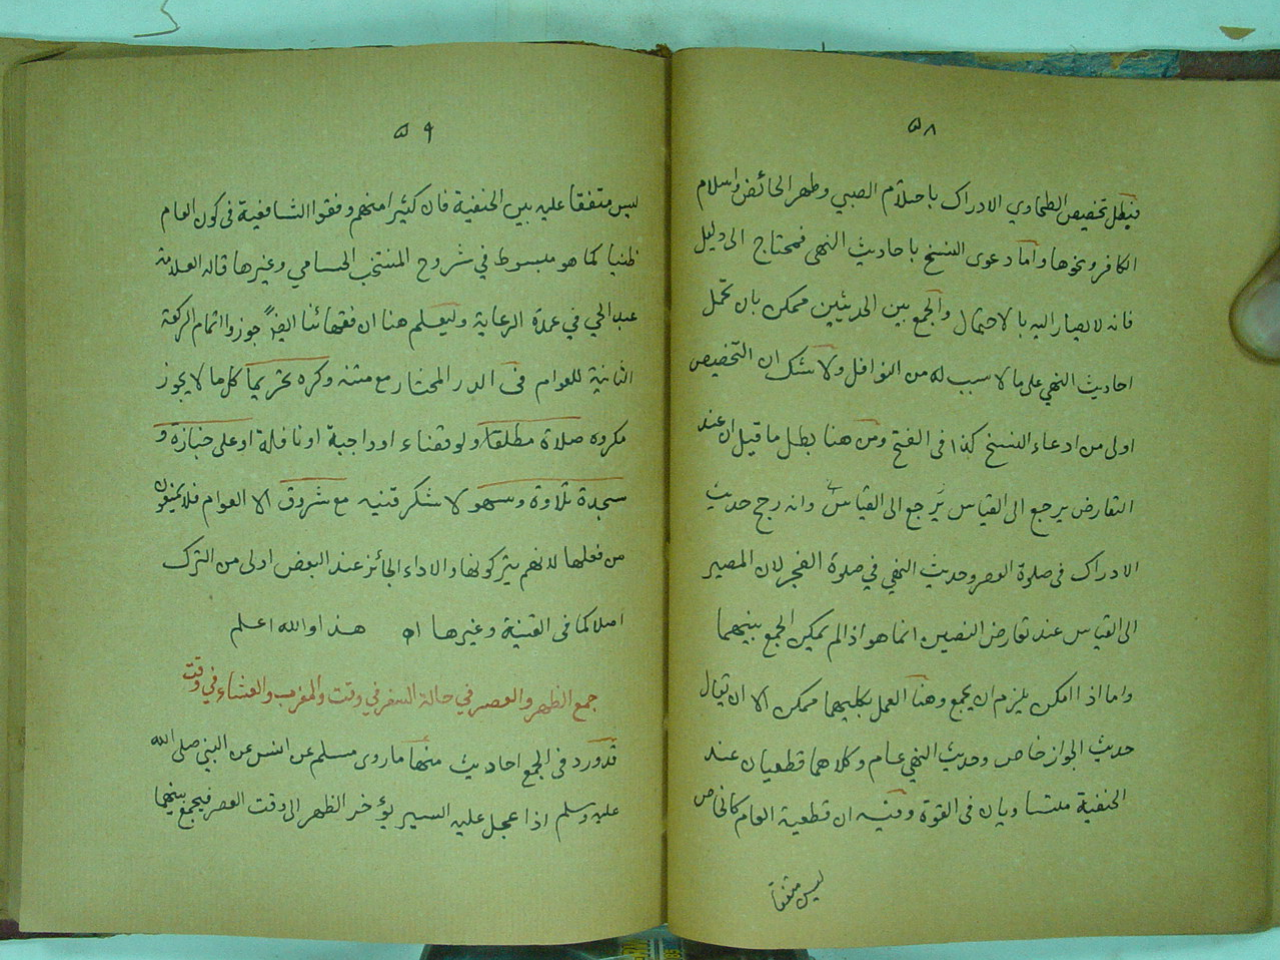 ٥٨
فيبطل تخصيص الطحاوي الادراك باحتلام الصبي وطهر الحائض واسلام
الكافر ونحوها واما دعوى النسخ باحاديث النهى فمحتاج الى دليل
فانه لا يصار اليه بالاحتمال والجمع بين الحديثين ممكن بان تحمل
احاديث النهي على ما لا سبب له من النوافل ولا شك ان التخصيص
اولى من ادعاء النسخ كذا فى الفتح ومن هنا بطل ما قيل ان عند
التعارض يرجع الى القياس يرجع الى القياس وانه رجح حديث
الادراك فى صلوة العصر وحديث النهي في صلوة الفجر لان المصير
الى القياس عند تعارض النصين انما هو اذا لم يمكن الجمع بينهما
واما اذا امكن يلزم ان يجمع وهنا العمل بكليهما ممكن الا ان يقال
حديث الجواز خاص وحديث النهي عام وكلاهما قطعيان عند
الحنفية متساويان فى القوة وفيه ان قطعية العام كالخاص
ليس متفقا
٥٩
ليس متفقا عليه بين الحنفية فان كثيرا منهم وفقوا الشافعية فى كون العام
ظنيا كما هو مبسوط في شروح المنتخب الحسامي وغيرها قاله العلامة
عبد الحي في عمدة الرعاية وليعلم هنا ان فقهائنا ايضا جوزوا اتمام الركعة
الثانية للعوام فى الدر المختار مع متنه وكره تحريما كل ما لا يجوز
مكروه صلاة مطلقا ولو قضاء او واجبة او نافلة او على جنازة و
سجدة تلاوة وسهو لا شكر قنيه مع شروق الا العوام فلا يمنعون
من فعلها لانهم يتركونها والاداء الجائز عند البعض اولى من الترك
اصلا كما فى القنية وغيرها اه هذا والله اعلم
جمع الظهر والعصر في حالة السفر في وقت والمغرب والعشاء في وقت
قد ورد فى الجمع احاديث منها ما روى مسلم عن انس عن النبي صلى الله
عليه وسلم اذا عجل عليه السير يؤخر الظهر الى وقت العصر فيجمع بينهما